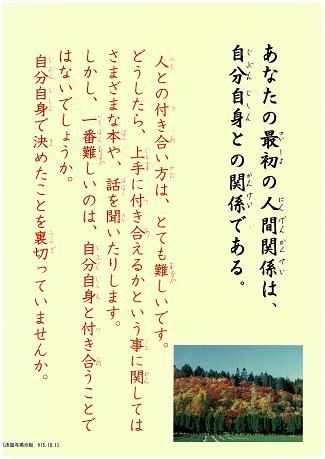 あなたの最初の人間関係は、
自分自身との関係である。
人との付き合い方は、とても難しいです。
どうしたら、上手に付き合えるかという事に関しては
さまざまな本や、話を聞いたりします。
しかし、一番難しいのは、自分自身と付き合うことで
はないでしょうか。
自分自身で決めたことを裏切っていませんか。